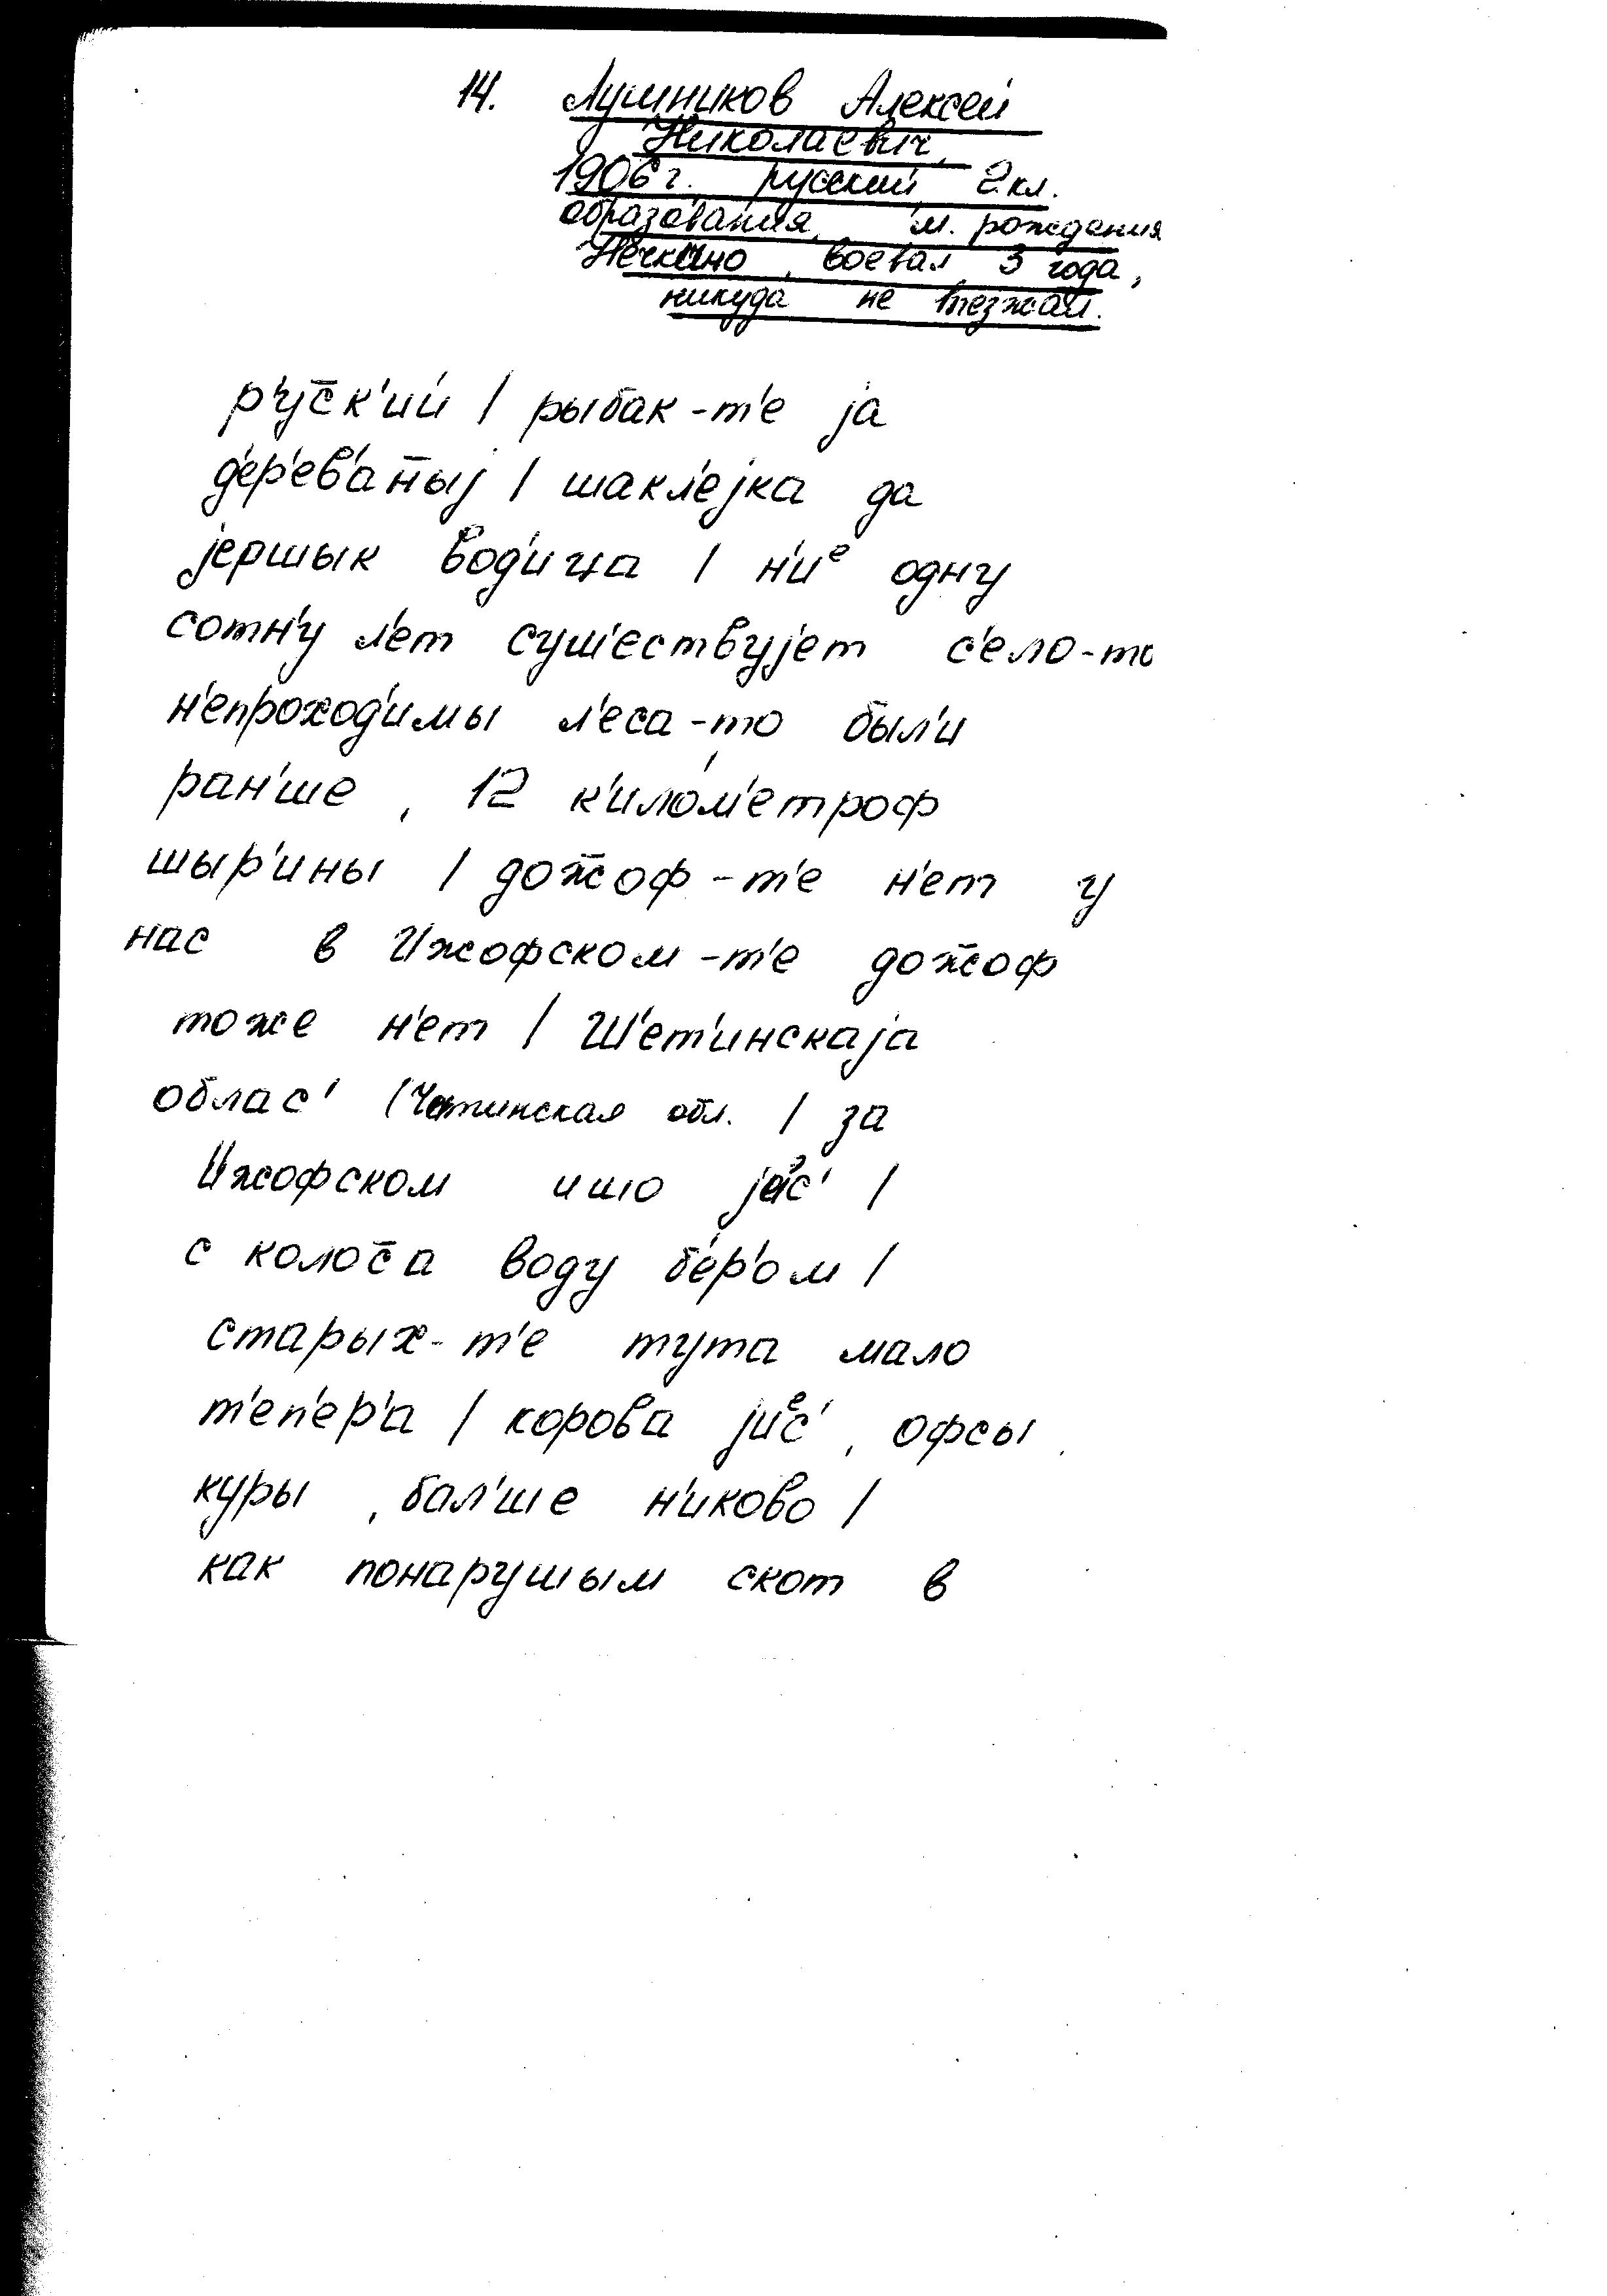 14. Лушников Алексей
Николаевич,
1906 г. русский, 2 кл.
образования, м. рождения
Нечкино, воевал 3 года,
никуда не выезжал.
р'ус̄к'ий | рыбак-т'е jа
д'ер'ев'ан̄ыj | шакл'еjка да
jершык вод'ица | н'иᵉ одну
сотн'у л'ет суш'ествуjет с'ело-то
н'епроход'имы л'еса-то были
ран'ше, 12 к'илом'етроф
шыр'ины | дож̄оф-т'е н'ет у
нас в Ижофском-т'е дож̄оф
тоже н'ет | Ш'ет'инскаjа
облас' (Читинская обл. | за
Ижофском ишо jиᵉс' |
с колос̄а воду б'ер'ом |
старых-т'е тута мало
т'еп'ер'а | корова jиᵉс', офсы,
куры, бал'ше н'иково |
как понарушым скот в